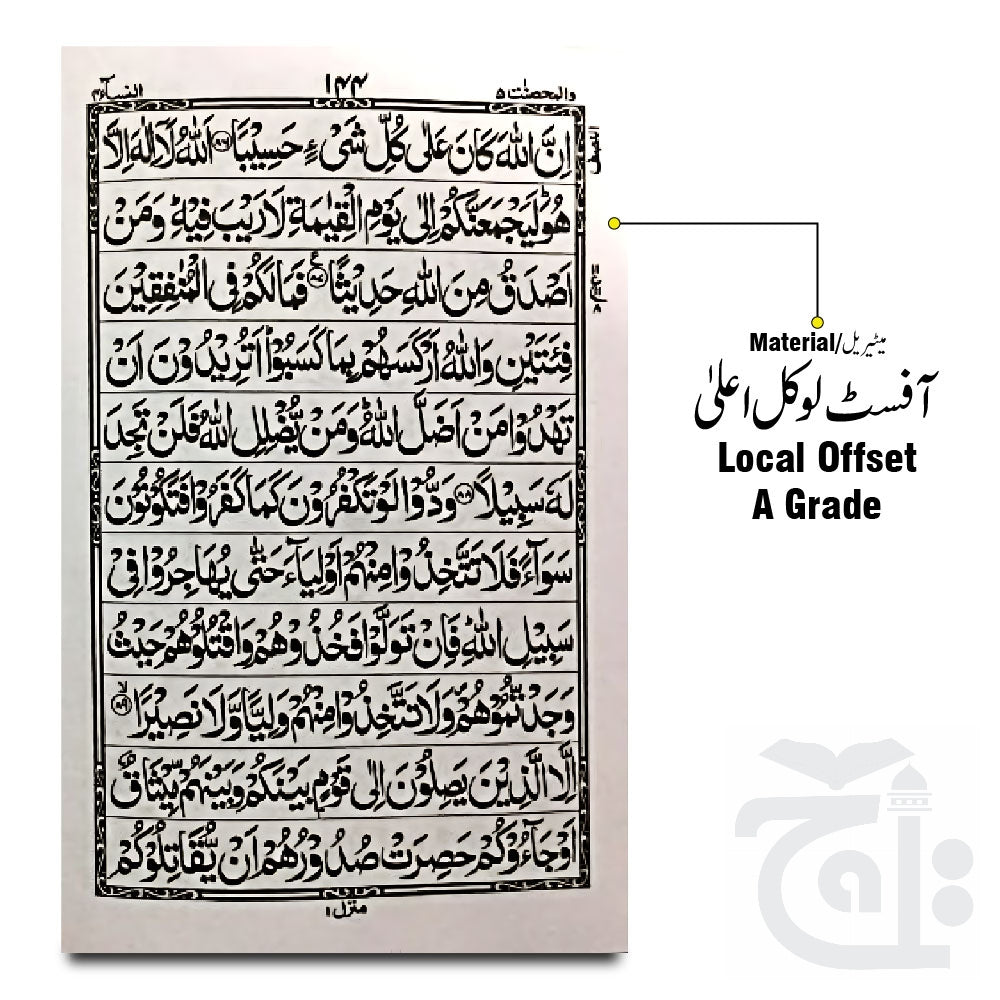 والمحصنت ۵
۱۴۴
النسآء ۴
اِنَّ اللّٰهَ كَانَ عَلٰى كُلِّ شَىْءٍ حَسِيْبًا ﴿۸۶﴾ اَللّٰهُ لَاۤ اِلٰهَ اِلَّا
هُوَ ؕ لَيَجْمَعَنَّكُمْ اِلٰى يَوْمِ الْقِيٰمَةِ لَا رَيْبَ فِيْهِ ؕ وَمَنْ
اَصْدَقُ مِنَ اللّٰهِ حَدِيْثًا ﴿۸۷﴾ ع فَمَا لَكُمْ فِى الْمُنٰفِقِيْنَ
فِئَتَيْنِ وَاللّٰهُ اَرْكَسَهُمْ بِمَا كَسَبُوْا ؕ اَتُرِيْدُوْنَ اَنْ
تَهْدُوْا مَنْ اَضَلَّ اللّٰهُ ؕ وَمَنْ يُّضْلِلِ اللّٰهُ فَلَنْ تَجِدَ
لَهٗ سَبِيْلًا ﴿۸۸﴾ وَدُّوْا لَوْ تَكْفُرُوْنَ كَمَا كَفَرُوْا فَتَكُوْنُوْنَ
سَوَآءً فَلَا تَتَّخِذُوْا مِنْهُمْ اَوْلِيَآءَ حَتّٰى يُهَاجِرُوْا فِىْ
سَبِيْلِ اللّٰهِ ؕ فَاِنْ تَوَلَّوْا فَخُذُوْهُمْ وَاقْتُلُوْهُمْ حَيْثُ
وَجَدْتُّمُوْهُمْ ۪ وَلَا تَتَّخِذُوْا مِنْهُمْ وَلِيًّا وَّلَا نَصِيْرًا ﴿۸۹﴾ ۙ
اِلَّا الَّذِيْنَ يَصِلُوْنَ اِلٰى قَوْمٍۭ بَيْنَكُمْ وَبَيْنَهُمْ مِّيْثَاقٌ
اَوْ جَآءُوْكُمْ حَصِرَتْ صُدُوْرُهُمْ اَنْ يُّقَاتِلُوْكُمْ
منزل ۱
Material/میٹیریل
آفسٹ لوکل اعلیٰ
Local Offset
A Grade